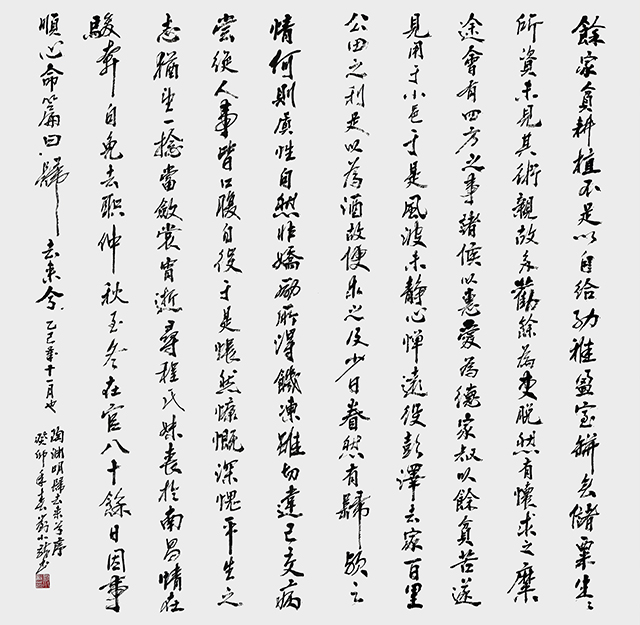 餘家貧耕植不足以自給幼稚盈室缾無儲粟生〻
所資未見其術親故多勸餘為吏脫然有懷求之靡
途會有四方之事諸侯以惠愛為德家叔以餘貧苦遂
見用于小邑于是風波未靜心憚遠役彭澤去家百里
公田之利足以為酒故便求之及少日眷然有歸歟之
情何則質性自然非矯勵所得饑凍雖切違己交病
嘗從人事皆口腹自役于是悵然慷慨深愧平生之
志猶望一稔當斂裳宵逝尋程氏妹喪於南昌情在
駿奔自免去职仲秋至冬在官八十餘日因事
順心命篇曰歸去来兮乙巳歲十一月也
陶淵明歸去来兮序
癸卯年春